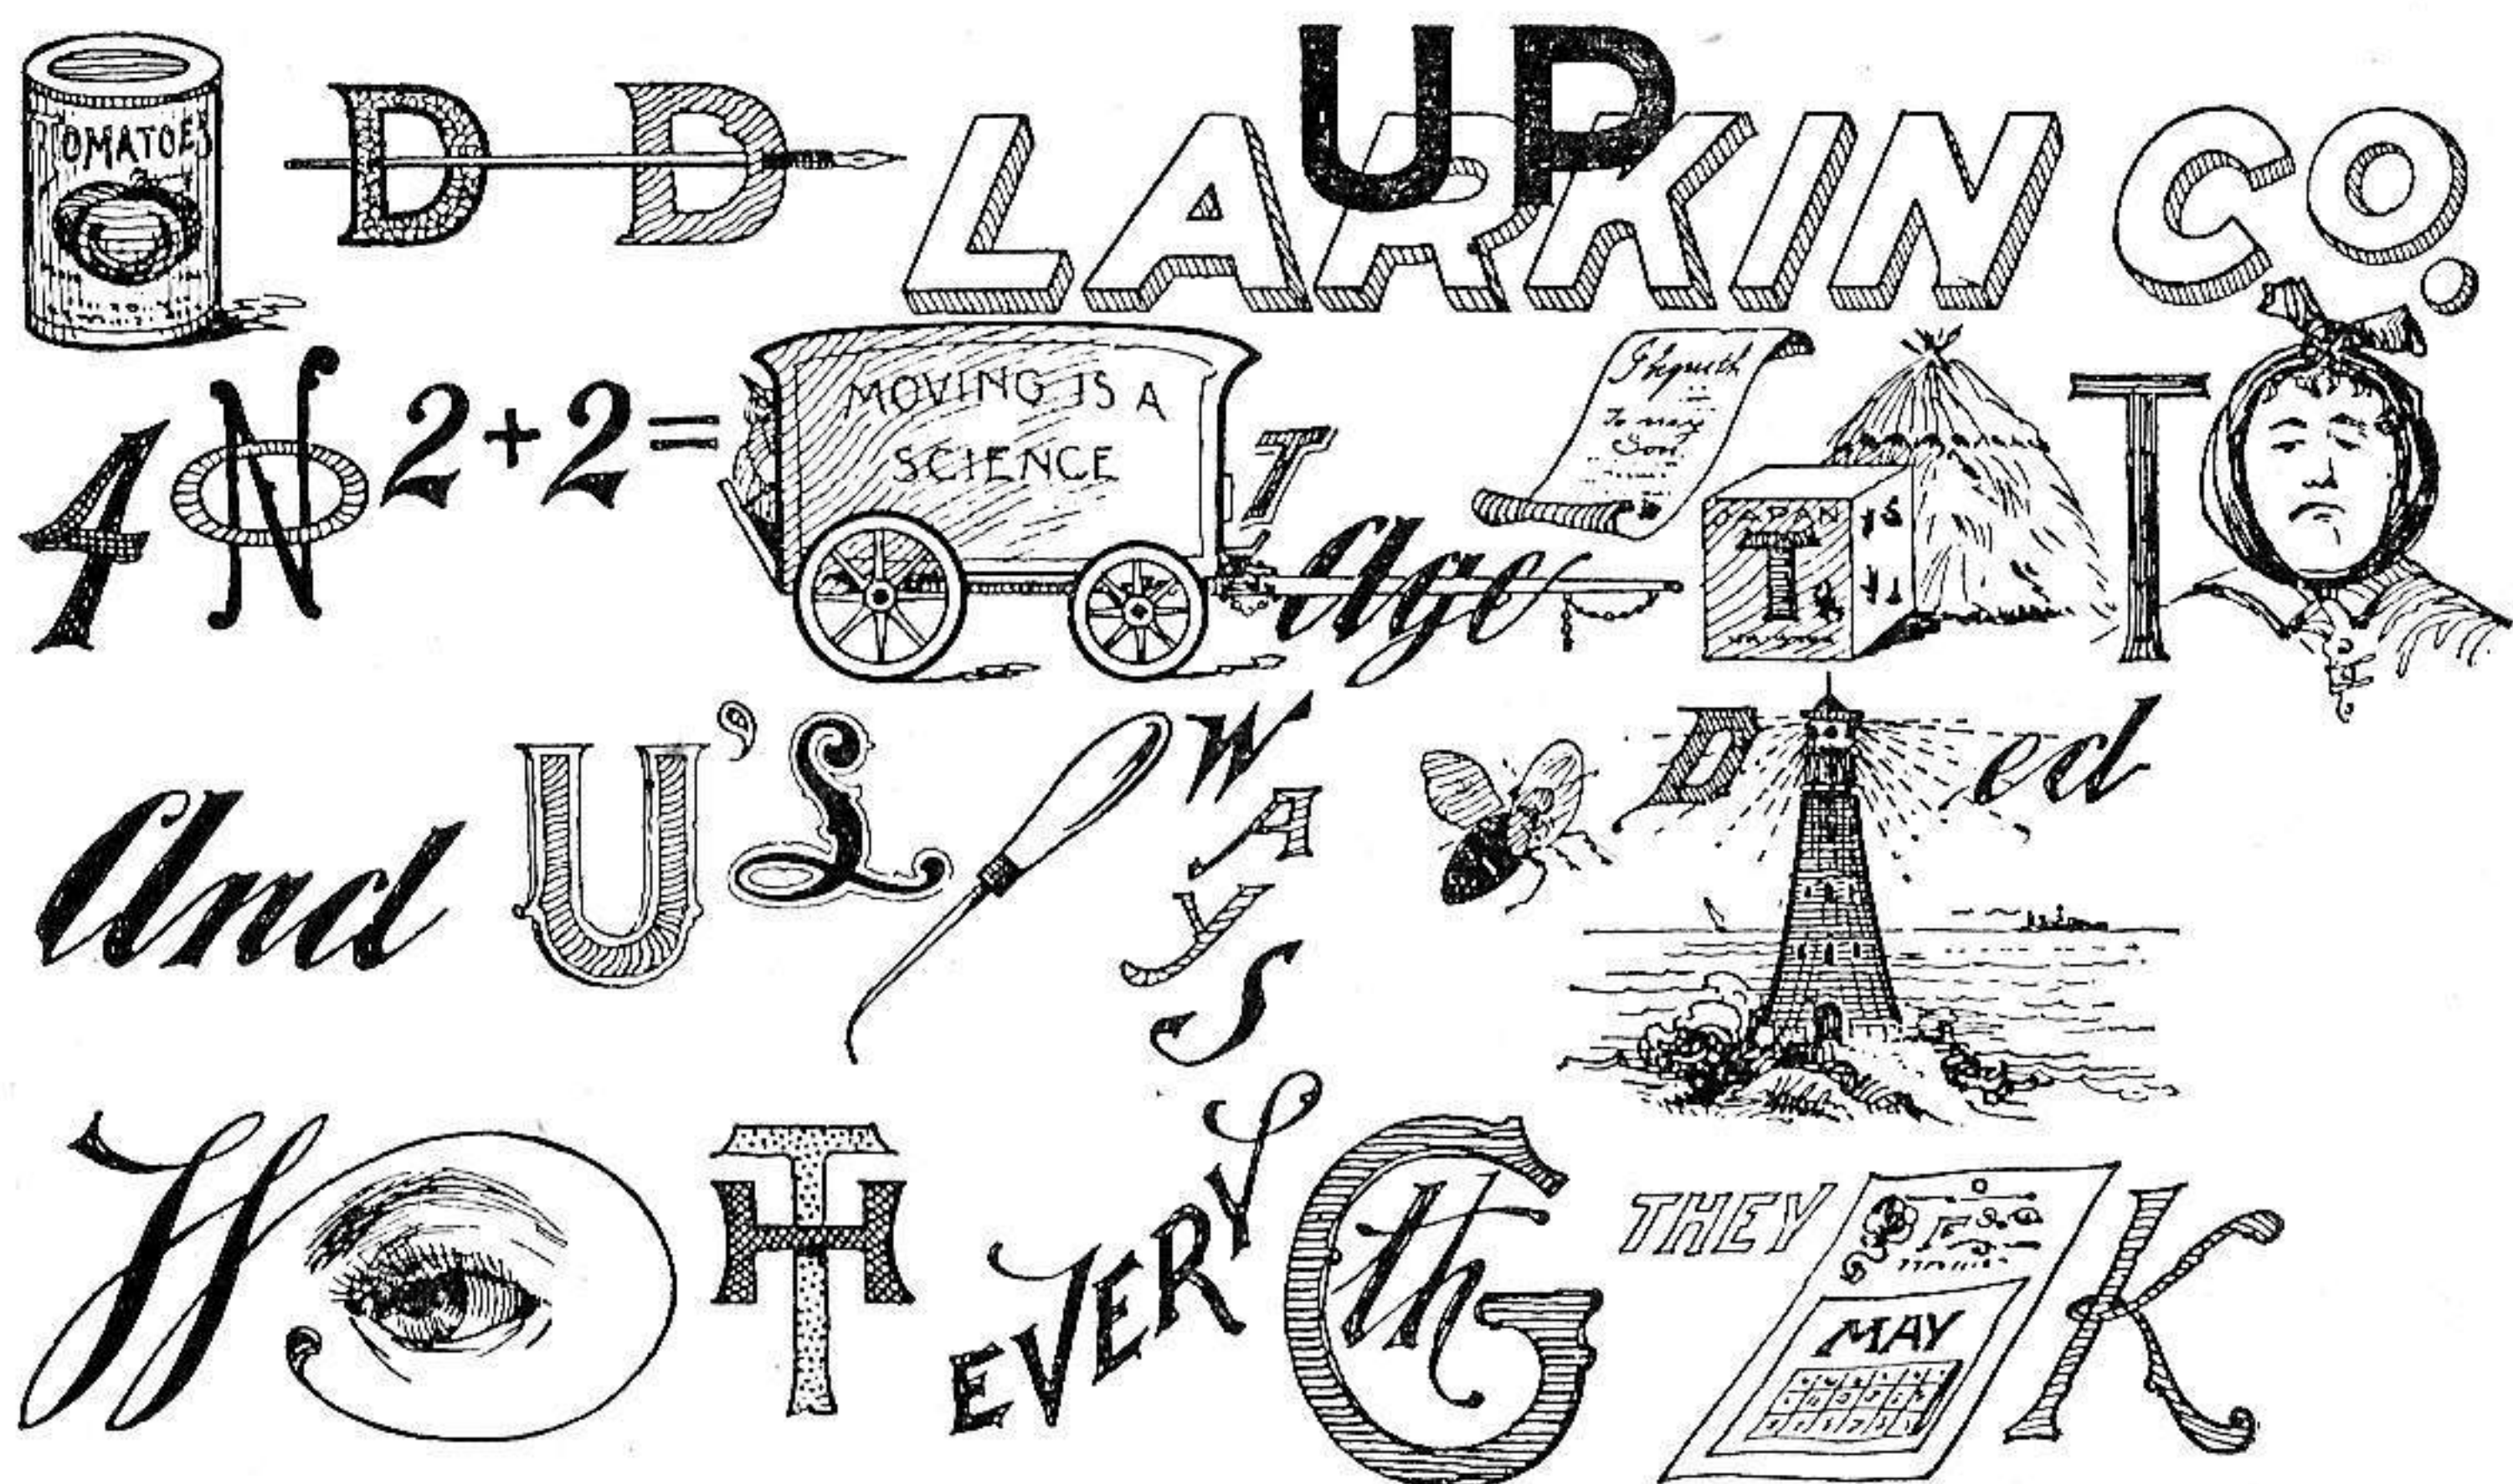 TOMATOES D D UP LARKIN CO.
4 N O 2+2= MOVING IS A SCIENCE T age JAPAN T T
And U's WAYS D ed
W TH EVERY th G THEY MAY K